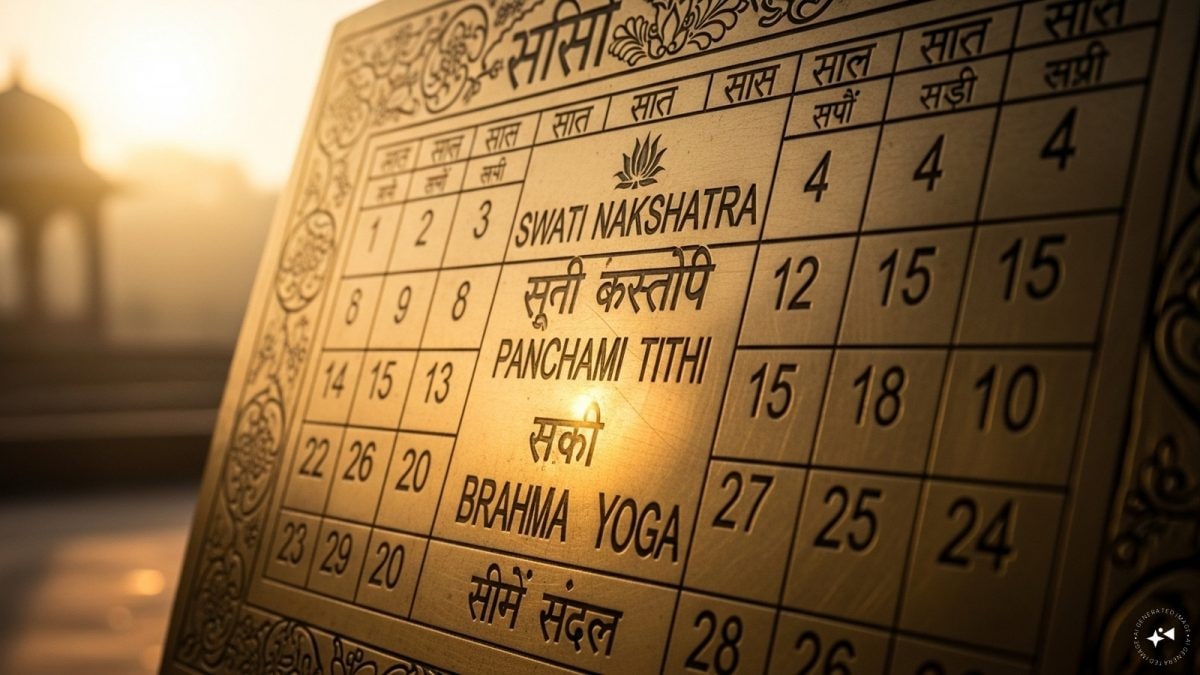 सासिो
सात साल साल सात सात सास साल सात सास
सपौं सड़ी सप्री
SWATI NAKSHATRA
4 4 4
1 2 3
सूती कस्तोपि
12 15 15
8 9 8
PANCHAMI TITHI
15 18 10
14 15 13
सकी
22 26 20
BRAHMA YOGA
27 25 24
23 29 20
सीमें संदल
28 26
AI GENERATED IMAGE